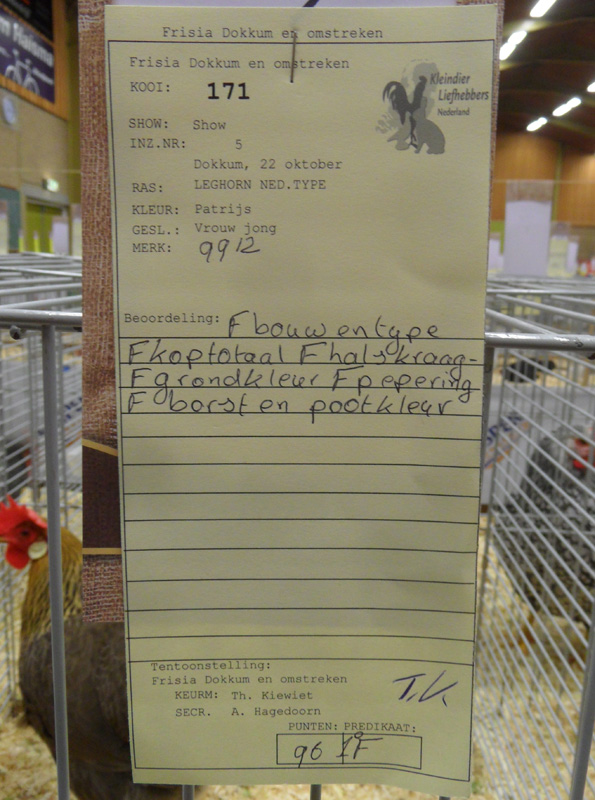 Frisia Dokkum en omstreken
Frisia Dokkum en omstreken
KOOI: 171
Kleindier
Liefhebbers
Nederland
SHOW: Show
INZ.NR: 5
Dokkum, 22 oktober
RAS: LEGHORN NED.TYPE
KLEUR: Patrijs
GESL.: Vrouw jong
MERK: 9912
Beoordeling: F bouw en type
F koptotaal F halskraag-
F grondkleur F pepering
F borst en pootkleur
Tentoonstelling:
Frisia Dokkum en omstreken
KEURM: Th. Kiewiet
T.K.
SECR. A. Hagedoorn
PUNTEN: PREDIKAAT:
96 1F